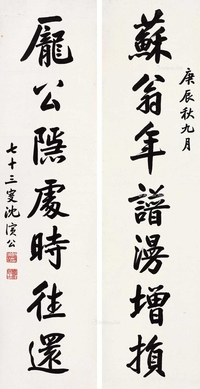 庚辰秋九月
蘇翁年譜漫增損
龐公隱處時往還
七十三叟沈演公